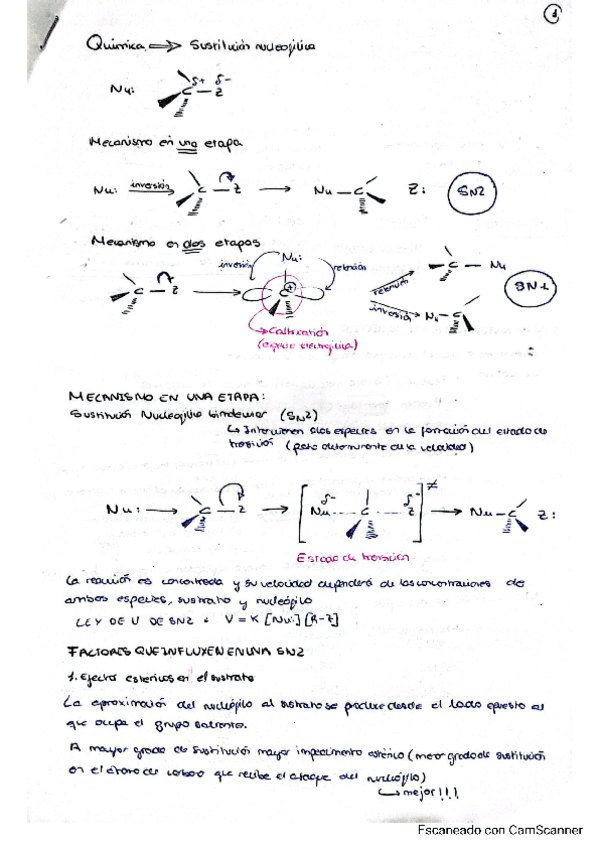 1
Química ⟹ Sustitución nucleofílica
Nu: C δ+ δ- Z
Mecanismo en una etapa
Nu: inversión C — Z → Nu — C Z: SN2
Mecanismo en dos etapas
inversión Nu: retención
C — Z → C + retención C — Nu SN1
inversión Nu — C
→ Carbocatión
(especie electrofílica)
MECANISMO EN UNA ETAPA:
Sustitución Nucleofílica bimolecular (SN2)
↳ Intervienen dos especies en la formación del estado de
transición (paso determinante de la velocidad)
Nu: → C — Z → [Nu δ- ---- C ---- Z δ-]≠ → Nu — C Z:
Estado de transición
La reacción es concertada y su velocidad dependerá de las concentraciones de
ambas especies, sustrato y nucleófilo
LEY DE V DE SN2 : V = K [Nu:] [R-Z]
FACTORES QUE INFLUYEN EN UNA SN2
1. Efectos estéricos en el sustrato
La aproximación del nucleófilo al sustrato se produce desde el lado opuesto al
que ocupa el grupo saliente.
A mayor grado de sustitución mayor impedimento estérico (menor grado de sustitución
en el átomo de carbono que recibe el ataque del nucleófilo)
↳ mejor!!!
Escaneado con CamScanner